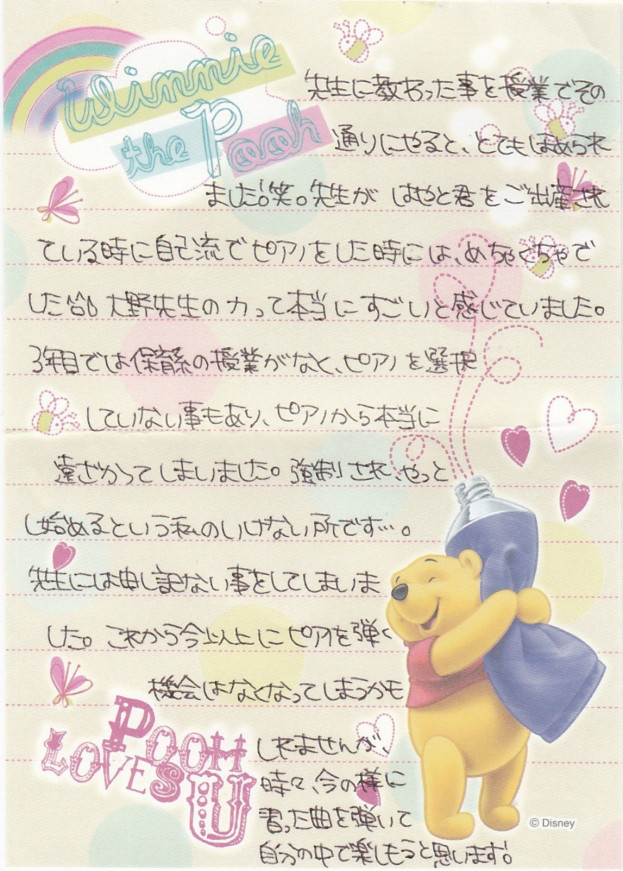 Winnie
the Pooh
先生に教わった事を授業でその
通りにやると、とてもほめられ
ました。笑。先生が はやと君をご出産され
ている時に自己流でピアノをした時には、めちゃくちゃで
した 大野先生の力って本当にすごいと感じていました。
3年目では保育系の授業がなく、ピアノを選択
していない事もあり、ピアノから本当に
遠ざかってしまいました。強制され、やっと
し始めるという私のいけない所です…。
先生には申し訳ない事をしてしまいま
した。これから今以上にピアノを弾く
機会はなくなってしまうかも
しれませんが、
時々、今の様に
習った曲を弾いて
自分の中で楽しもうと思います。
POOH
LOVES
U
© Disney